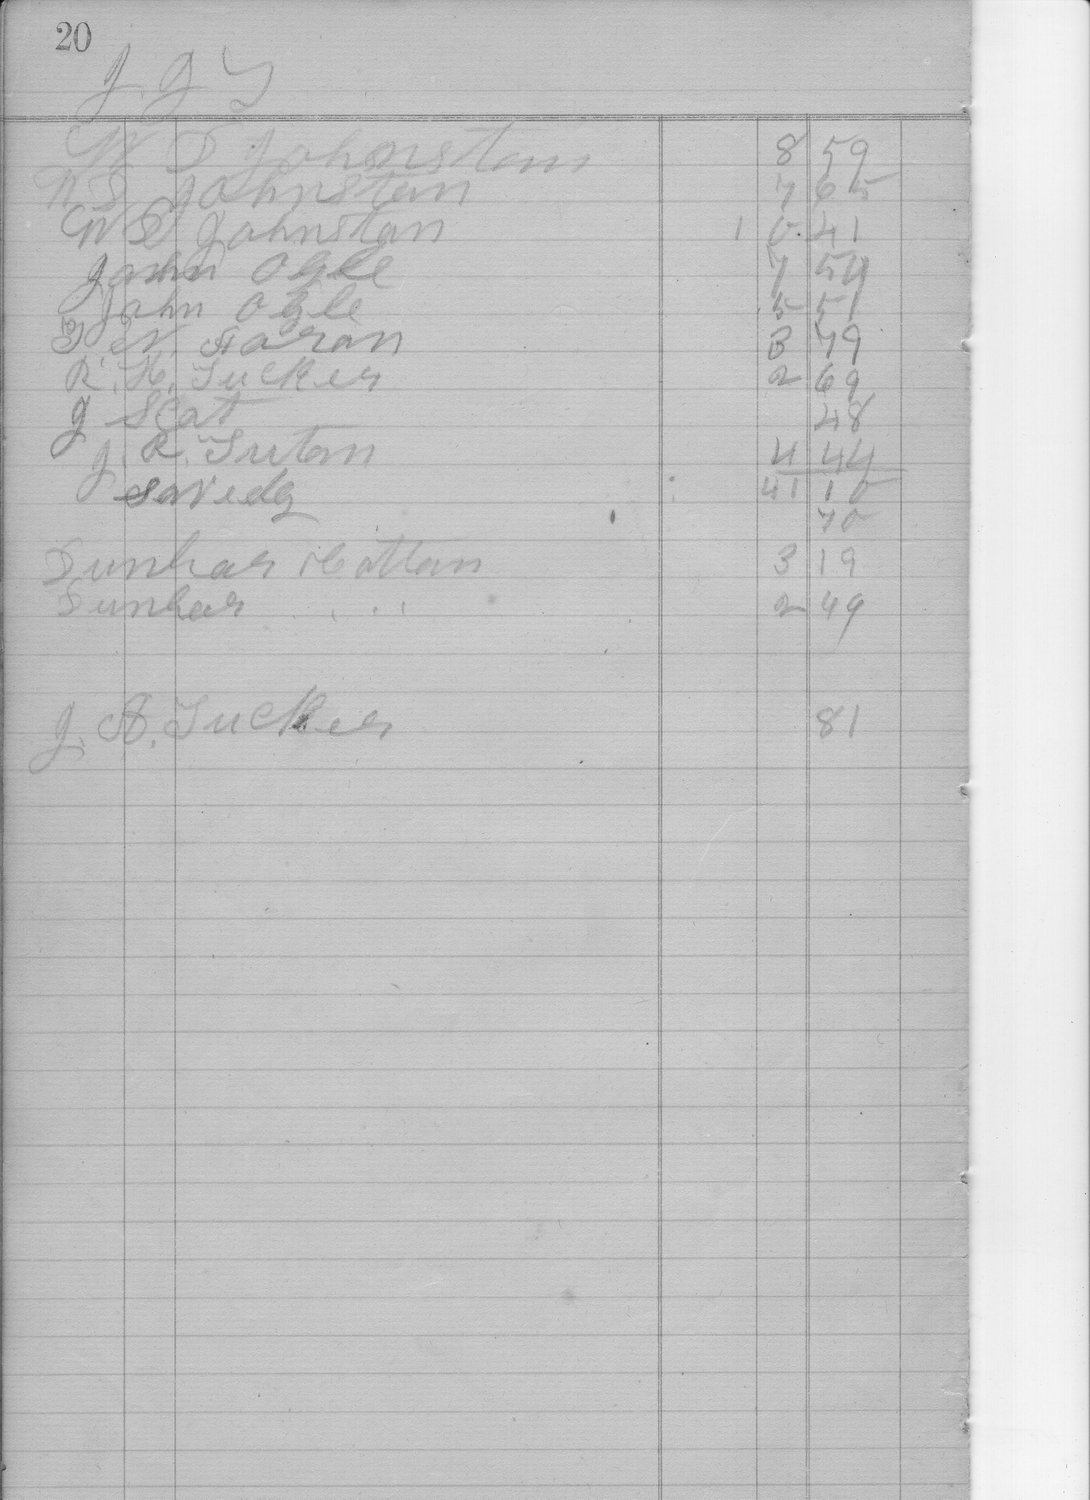 20
J. J. Y
W S Johnstan 8 59
W S Johnstan 7 65
W S Johnstan 1 0.41
John Ogle 7 54
John Ogle 5 51
N. Aaron 3 79
R. H. Tucker 2 69
J Scat 48
J. R. Tutan 4 44
41 10
70
Dunbar Cottan 3 19
Dunbar 2 49
J. A. Tucker 81